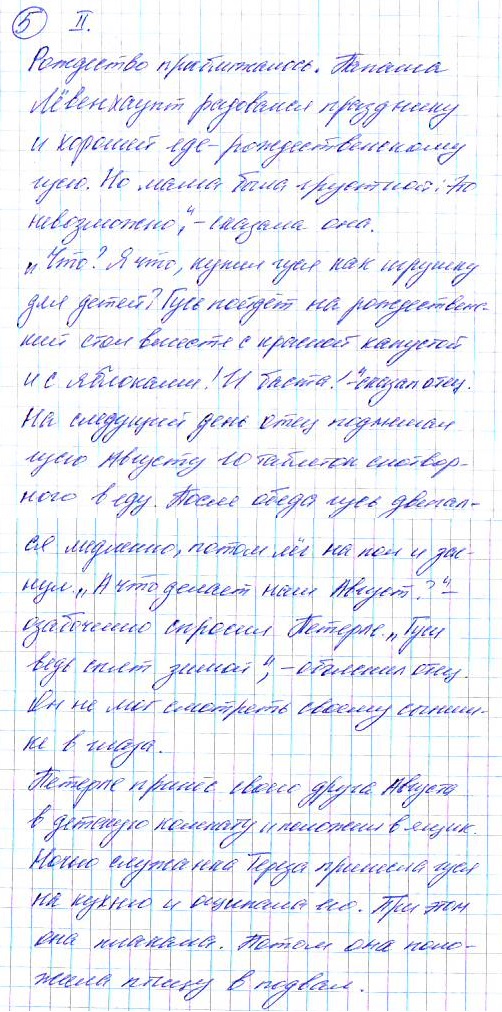 5 II.
Рождество приближалось. Папаша
Лёвенхаупт радовался празднику
и хорошей еде - рождественскому
гусю. Но мама была грустной: „Это
невозможно", - сказала она.
„Что? Я что, купил гуся как игрушку
для детей? Гусь пойдёт на рождествен-
ский стол вместе с красной капустой
и с яблоками! И баста!" - сказал отец.
На следущий день отец подмешал
гусю Августу 10 таблеток снотвор-
ного в еду. После обеда гусь двигал-
ся медленно, потом лёг на пол и зас-
нул. „А что делает наш Август?" -
озабоченно спросил Петерле. „Гуси
ведь спят зимой", - объяснил отец.
Он не мог смотреть своему сыниш-
ке в глаза.
Петерле принёс своего друга Августа
в детскую комнату и положил в ящик.
Ночью служанка Тереза принесла гуся
на кухню и ощипала его. При этом
она плакала. Потом она поло-
жила птицу в подвал.